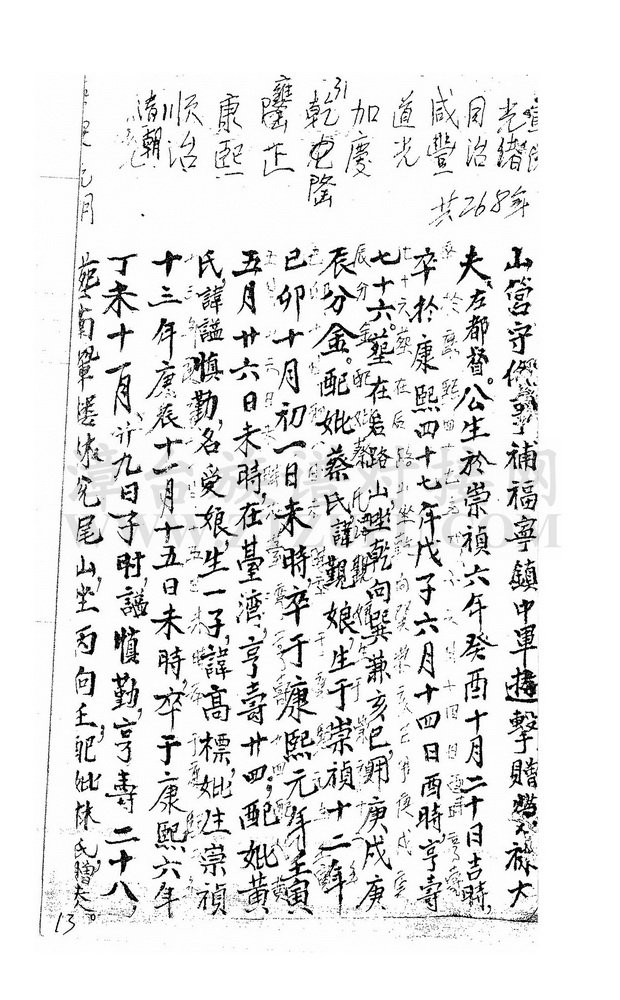 光緒
同治
咸豐
道光
加慶
31
乾隆
雍正
康熙
順治
清朝
共268年
元月
山營守備，補福寧鎮中軍遊擊贈祿大
夫左都督。公生於崇禎六年癸酉十月二十日吉時，
卒於康熙四十七年戊子六月十四日酉時，亨壽
七十六。墓在后路山，坐乾向巽兼亥巳，用庚戌庚
辰分金。配妣蔡氏諱觀娘，生于崇禎十二年
已卯十月初一日未時，卒于康熙元年壬寅
五月廿六日未時，在臺濟，亨壽廿四。配妣黃
氏，諱謚慎勤，名受娘，生一子，諱高標，妣生崇禎
十三年庚辰十一月十五日未時，卒于康熙六年
丁未十一月廿九日子时，謚慎勤，亨壽二十八，
尾山，坐丙向壬，配妣林氏贈夫。
13